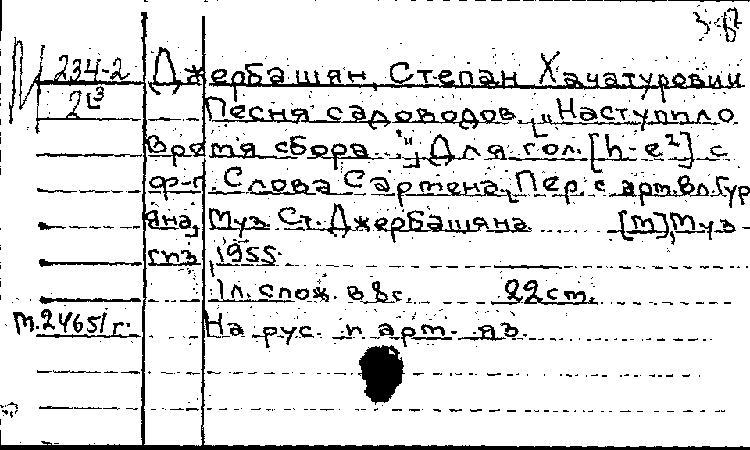 З-82
М 234-2 Джербашян, Степан Хачатурович
2L³ Песня садоводов. [„Наступило
время сбора..."] Для гол. [h-e²] с
ф-п. Слова Сармена, Пер. с арм. Вл. Гур
яна, Муз. Ст. Джербашяна [М], Муз-
гиз, 1955.
1 л. слож. в 8 с. 22 ст.
т. 24651 г. На рус. и арм. яз.